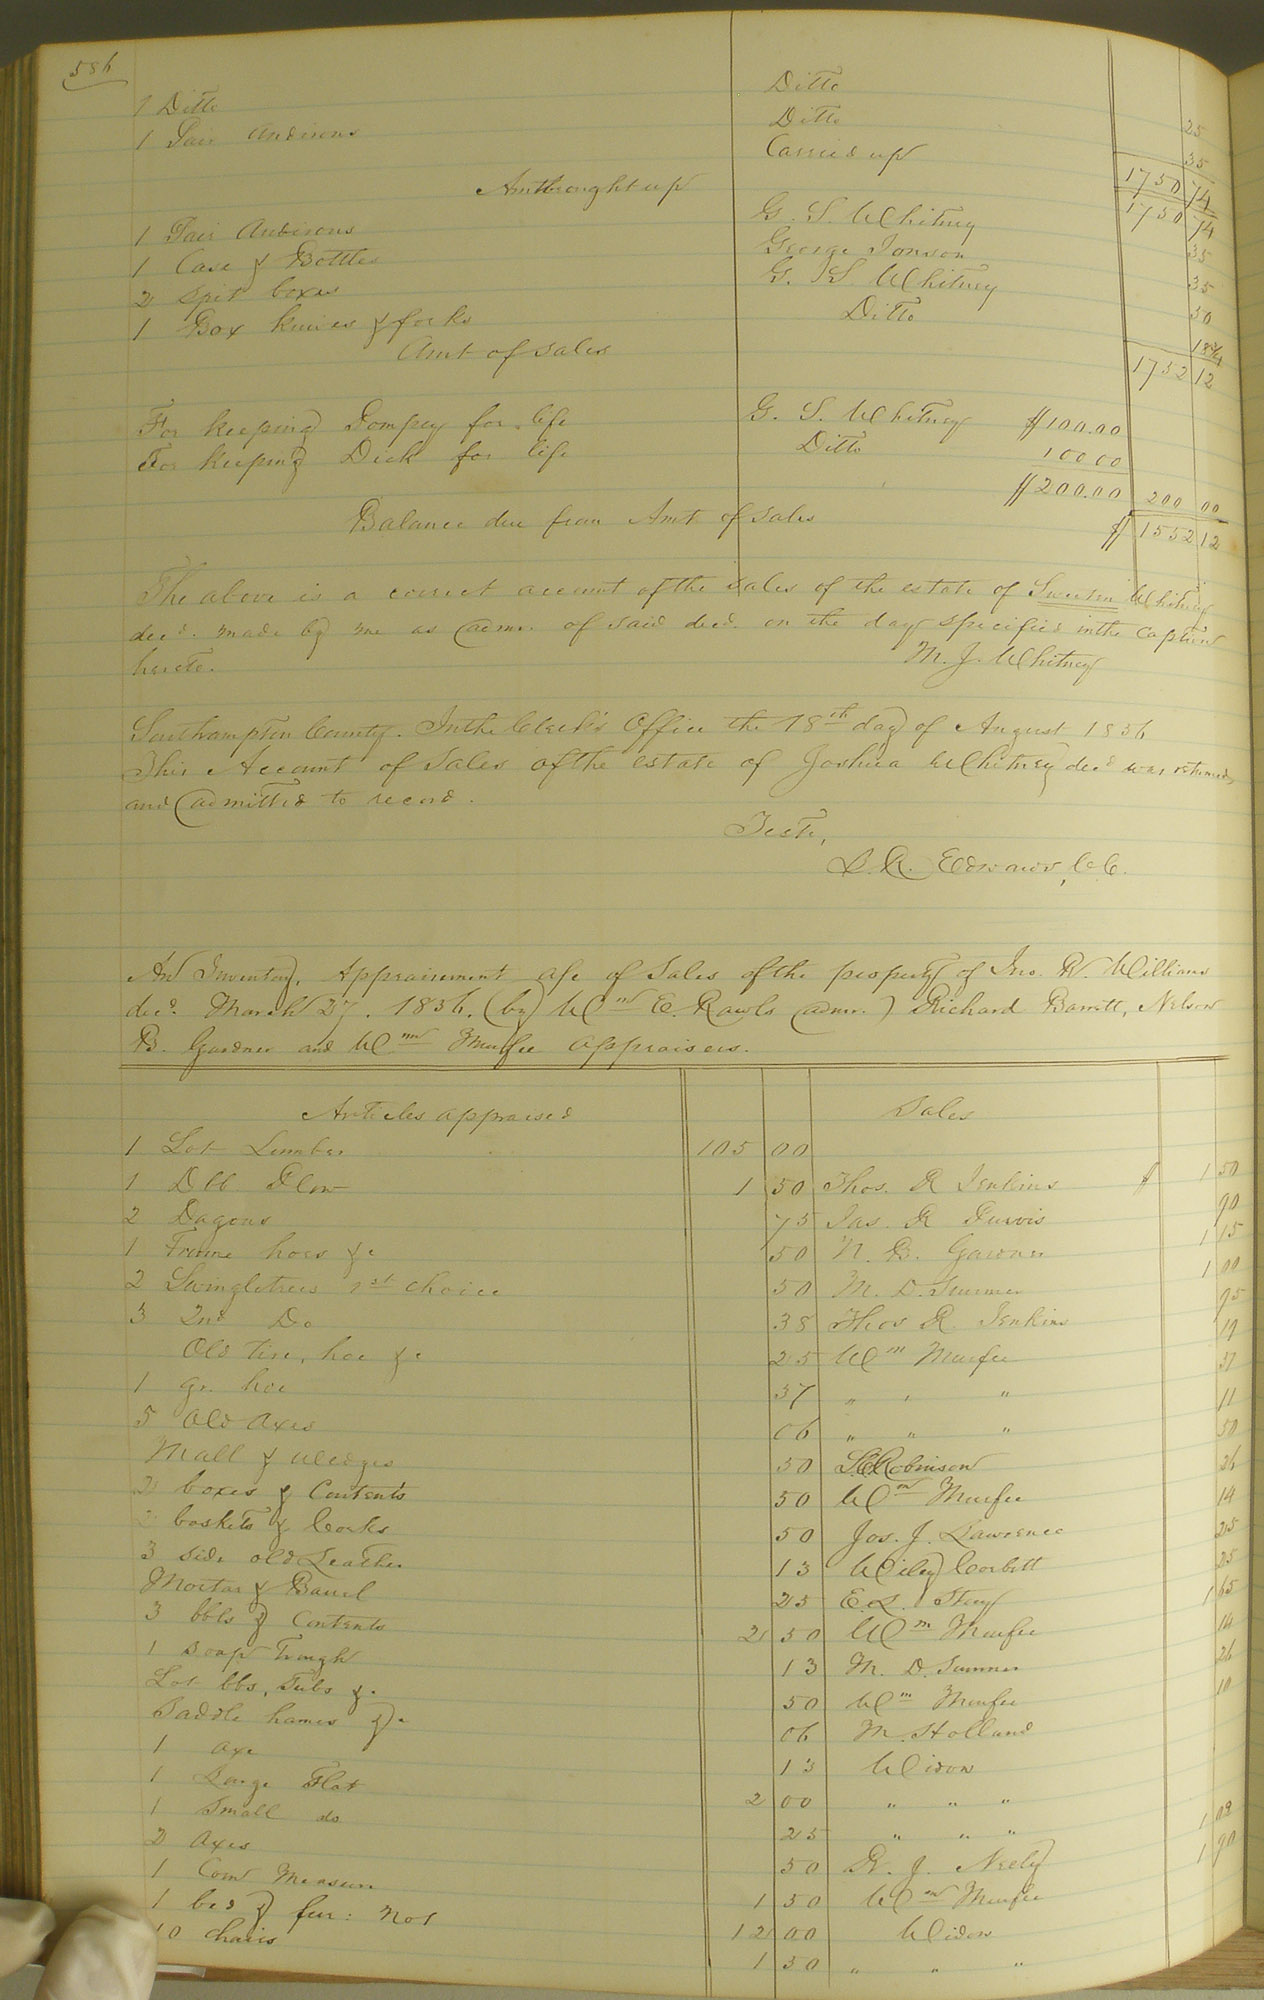 586
1 Ditto Ditto 25
1 Pair Andirons Ditto 35
Carried up 1750 74
Amt brought up 1750 74
1 Pair Andirons G. S. Whitney 35
1 Case & Bottles George Jonson 35
2 Spit boxes G. S. Whitney 50
1 Box knives & forks Ditto 18 3/4
Amt of Sales 1752 12
For keeping Pompey for life G. S. Whitney $100.00
For keeping Dick for life Ditto 100 00
$200.00 200 00
Balance due from Amt of Sales $1552 12
The above is a correct account of the sales of the estate of Whitney
decd. made by me as admr. of said decd. on the day specified in the Caption
hereto. M. J. Whitney
Southampton County. In the Clerk's Office the 18th day of August 1836
This Account of Sales of the estate of Joshua Whitney decd was returned
and admitted to record.
Teste,
L. R. Edwards, C.C.
An Inventory, Appraisement a/c of Sales of the property of Jno. W. Williams
decd. March 27, 1836. (by Wm E. Rawls admr.) Richard Barrett, Nelson
B. Gardner and Wm Murfee Appraisers.
Articles appraised Sales
1 Lot Lumber 105 00
1 Dbb Plow 1 50 Thos. R Jenkins $ 1 50
2 Dagons 75 Jas. R Purvis 90
1 Frame hoes &c 50 N. B. Gardner 1 15
2 Swingletrees 1st choice 50 M. D. Sumner 1 00
3 2nd Do 38 Thos R. Jenkins 95
Old tire, hoe &c 25 Wm Murfee 19
1 gr. hoe 37 " " " 37
5 Old Axes 06 " " " 11
Mall & wedges 50 Robinson 50
2 boxes & Contents 50 Wm Murfee 26
2 baskets & Corks 50 Jos. J. Lawrence 14
3 side old Leather 13 Wiley Corbett 25
Mortar & Barrel 25 E. L. Story 25
3 bbls & Contents 2 50 Wm Murfee 1 65
1 Soap Trough 13 M. D. Sumner 14
Lot bbs, Tubs &c 50 Wm Murfee 26
Saddle hames &c 06 M. Holland 10
1 axe 13 Widow
1 Large Flat 2 00 " " "
1 Small do 25 " " "
2 Axes 50 R. J. Neely 1 02
1 Corn Measure 1 50 Wm Murfee 1 90
1 bed & fur: No 1 12 00 Widow
10 chairs 1 50 " " "